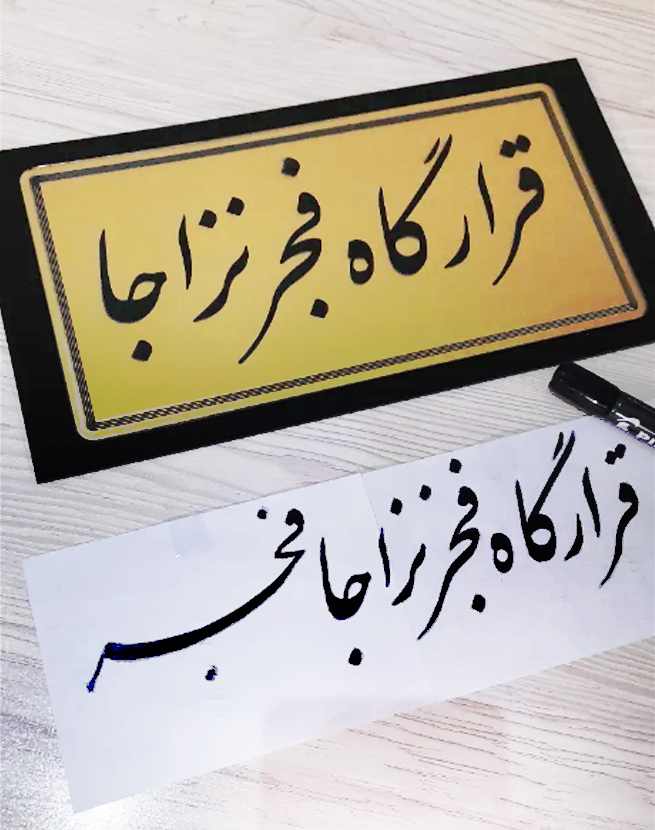 قرارگاه فجر نزاجا
قرارگاه فجر نزاجا فجر